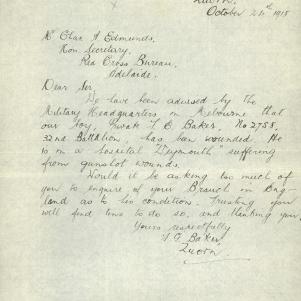 Quorn,
October 21st 1918
Mr Chas A Edmunds,
Hon. Secretary,
Red Cross Bureau,
Adelaide.
Dear Sir,
We have been advised by the
Military Headquarters in Melbourne that
our boy, Private T. B. Baker, No 2758,
32nd Battalion, has been wounded. He
is in a hospital "Weymouth" suffering
from gunshot wounds.
Would it be asking too much of
you to enquire of your Branch in Eng-
land as to his condition. Trusting you
will find time to do so, and thanking you,
Yours respectfully
Baker,
Quorn.